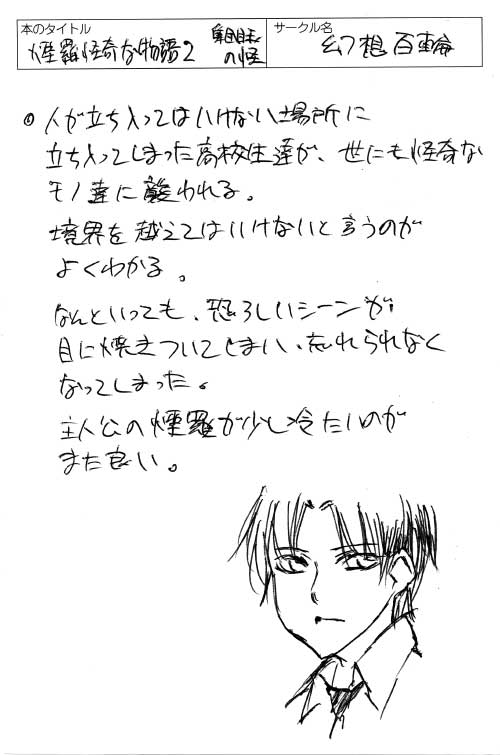 本のタイトル
煙羅怪奇な物語2
の怪
サークル名
幻想百輪
◎ 人が立ち入ってはいけない場所に
立ち入ってしまった高校生達が、世にも怪奇な
モノ達に襲われる。
境界を越えてはいけないと言うのが
よくわかる。
なんといっても、恐ろしいシーンが
目に焼きついてしまい、忘れられなく
なってしまった。
主人公の煙羅が少し冷たいのが
また良い。